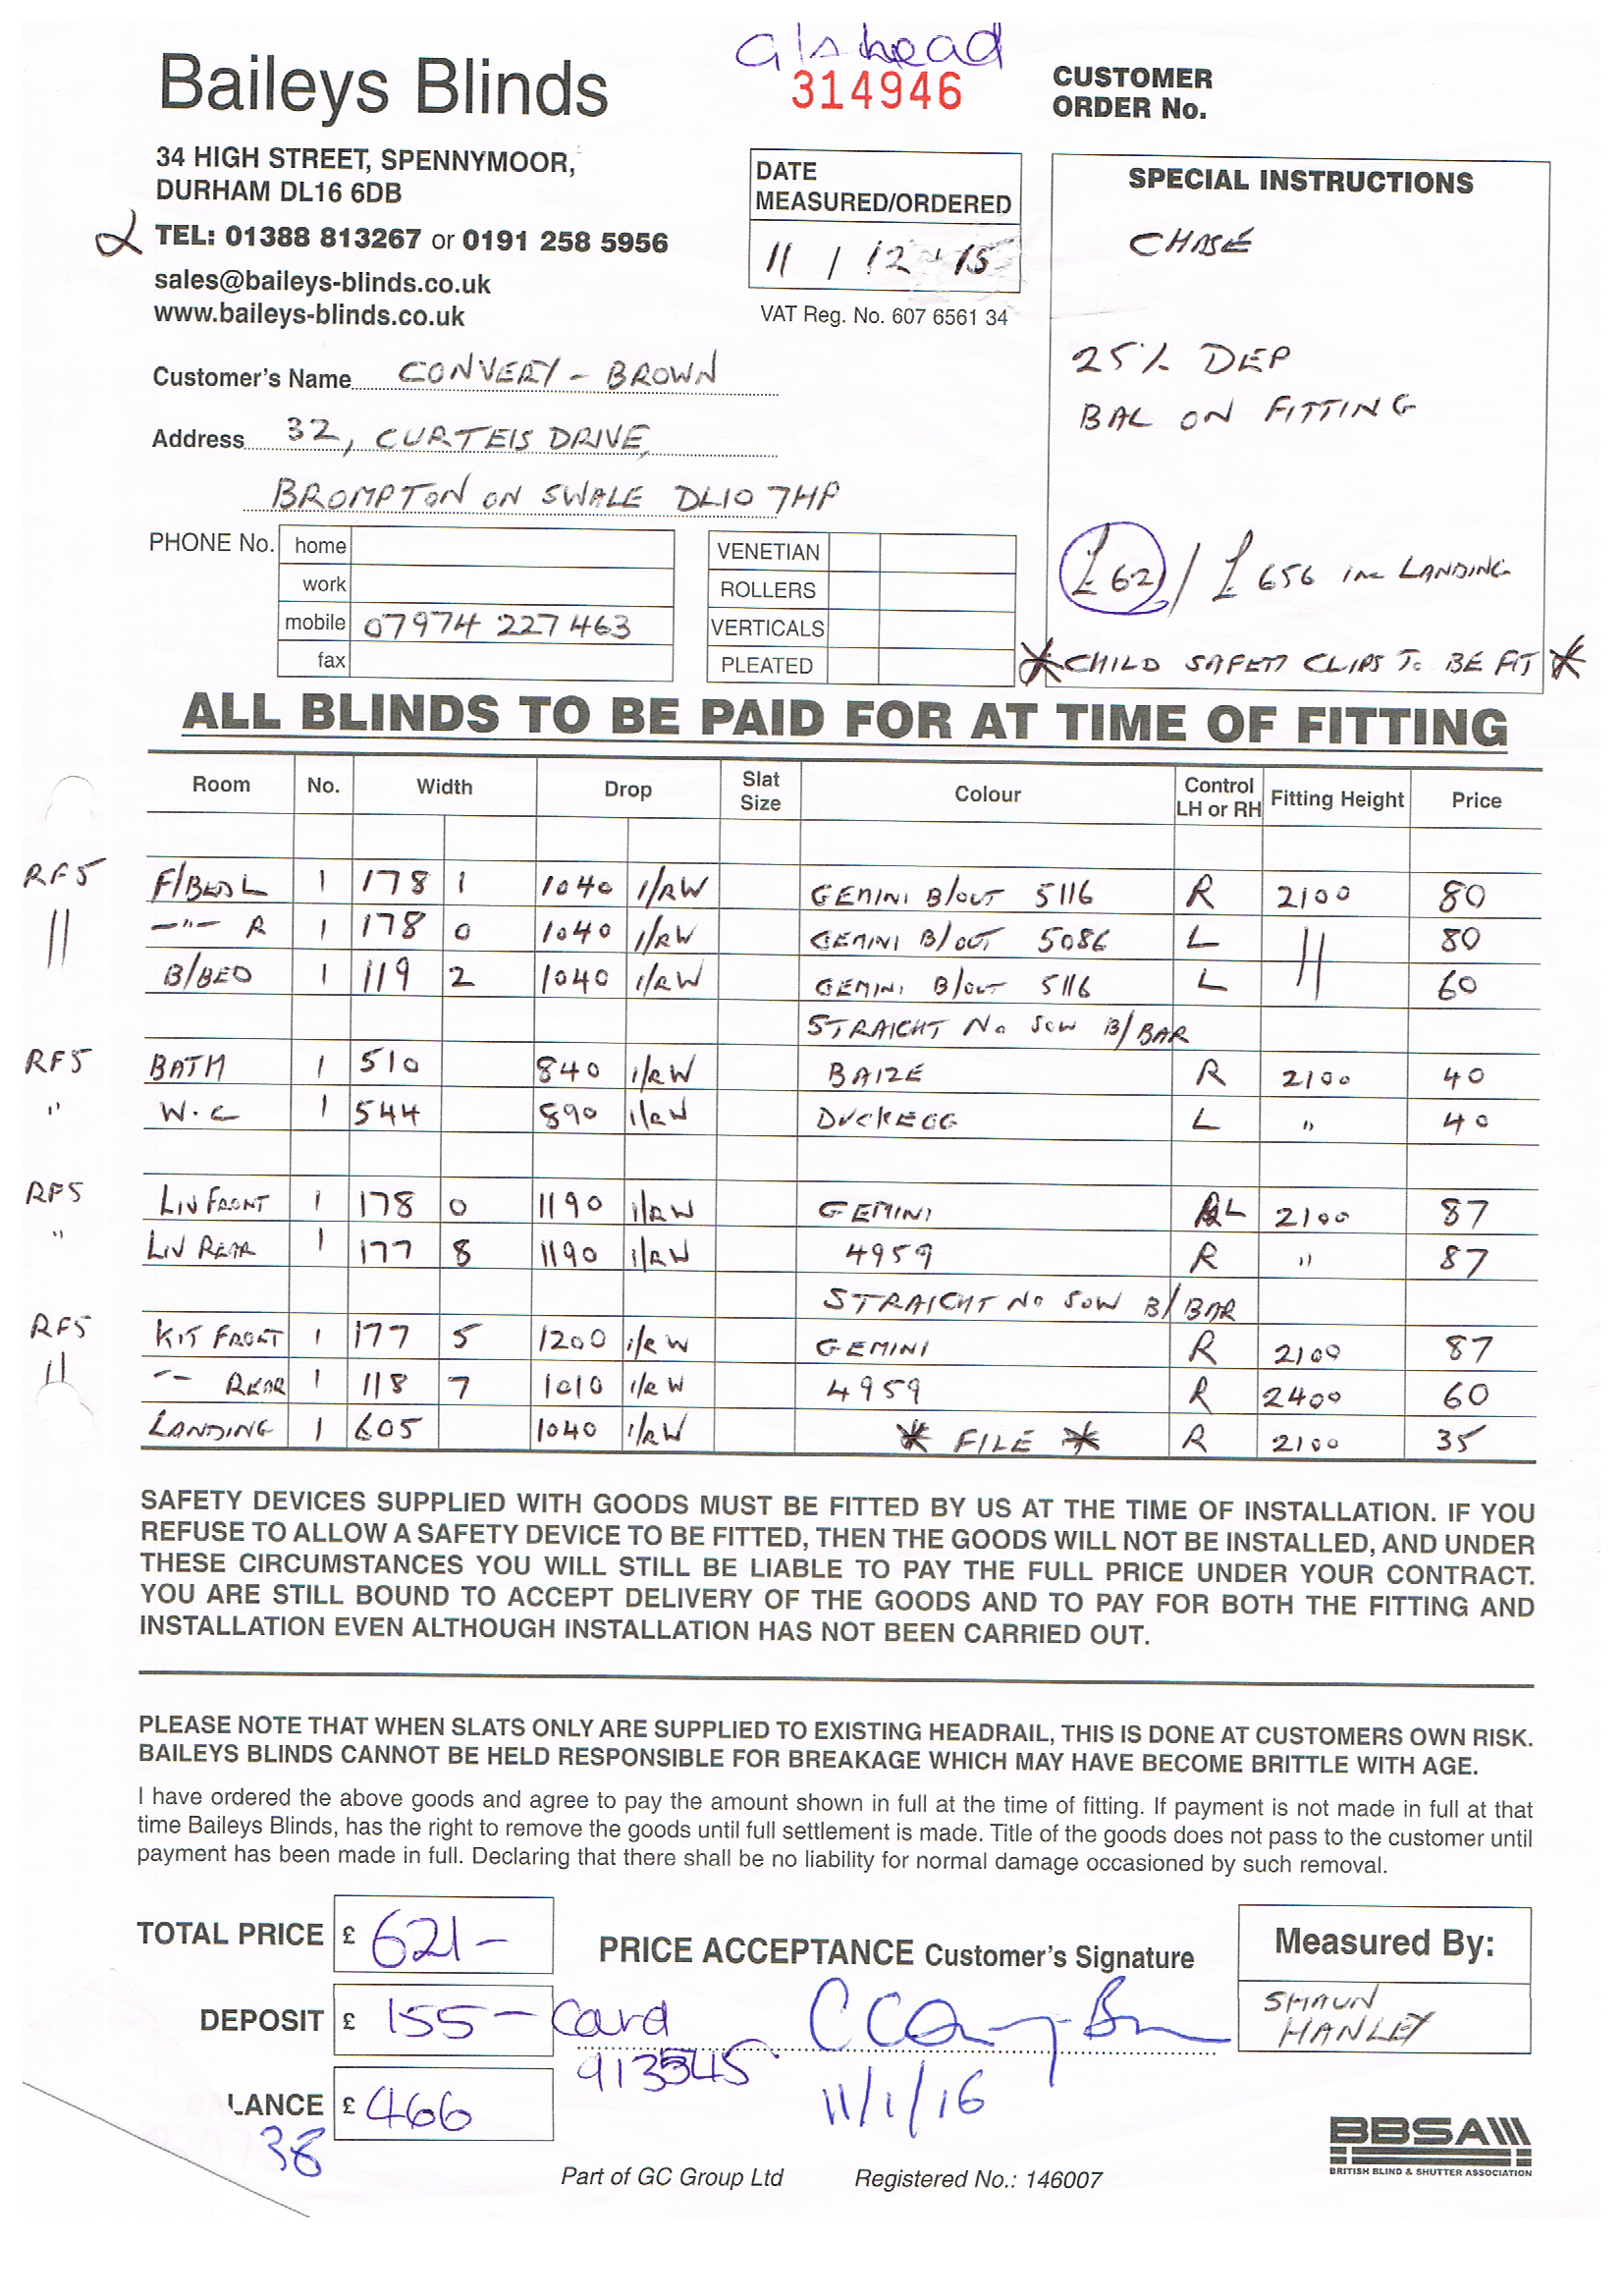 a/s head
Baileys Blinds
314946
CUSTOMER
ORDER No.
34 HIGH STREET, SPENNYMOOR,
DURHAM DL16 6DB
TEL: 01388 813267 or 0191 258 5956
sales@baileys-blinds.co.uk
www.baileys-blinds.co.uk
DATE
MEASURED/ORDERED
11 / 12 - 15
VAT Reg. No. 607 6561 34
SPECIAL INSTRUCTIONS
CHASE
25% DEP
BAL ON FITTING
£621 / £656 inc LANDING
* CHILD SAFETY CLIPS To BE FIT *
Customer's Name CONVERY - BROWN
Address 32, CURTEIS DRIVE,
BROMPTON ON SWALE DL10 7HP
PHONE No. home
work
mobile 07974 227463
fax
VENETIAN
ROLLERS
VERTICALS
PLEATED
ALL BLINDS TO BE PAID FOR AT TIME OF FITTING
Room No. Width Drop Slat Size Colour Control LH or RH Fitting Height Price
RF5 F/BED L 1 178 1 1040 1/RW GEMINI B/OUT 5116 R 2100 80
" -"- R 1 178 0 1040 1/RW GEMINI B/OUT 5086 L " 80
B/BED 1 119 2 1040 1/RW GEMINI B/OUT 5116 L 60
STRAIGHT No SOW B/BAR
RF5 BATH 1 510 840 1/RW BAIZE R 2100 40
" W.C 1 544 890 1/RW DUCKEGG L " 40
RF5 LIV FRONT 1 178 0 1190 1/RW GEMINI L 2100 87
" LIV REAR 1 177 8 1190 1/RW 4959 R " 87
STRAIGHT No SOW B/BAR
RF5 KIT FRONT 1 177 5 1200 1/RW GEMINI R 2100 87
" -- REAR 1 118 7 1010 1/RW 4959 R 2400 60
LANDING 1 605 1040 1/RW * FILE * R 2100 35
SAFETY DEVICES SUPPLIED WITH GOODS MUST BE FITTED BY US AT THE TIME OF INSTALLATION. IF YOU
REFUSE TO ALLOW A SAFETY DEVICE TO BE FITTED, THEN THE GOODS WILL NOT BE INSTALLED, AND UNDER
THESE CIRCUMSTANCES YOU WILL STILL BE LIABLE TO PAY THE FULL PRICE UNDER YOUR CONTRACT.
YOU ARE STILL BOUND TO ACCEPT DELIVERY OF THE GOODS AND TO PAY FOR BOTH THE FITTING AND
INSTALLATION EVEN ALTHOUGH INSTALLATION HAS NOT BEEN CARRIED OUT.
PLEASE NOTE THAT WHEN SLATS ONLY ARE SUPPLIED TO EXISTING HEADRAIL, THIS IS DONE AT CUSTOMERS OWN RISK.
BAILEYS BLINDS CANNOT BE HELD RESPONSIBLE FOR BREAKAGE WHICH MAY HAVE BECOME BRITTLE WITH AGE.
I have ordered the above goods and agree to pay the amount shown in full at the time of fitting. If payment is not made in full at that
time Baileys Blinds, has the right to remove the goods until full settlement is made. Title of the goods does not pass to the customer until
payment has been made in full. Declaring that there shall be no liability for normal damage occasioned by such removal.
TOTAL PRICE £ 621-
PRICE ACCEPTANCE Customer's Signature
Measured By:
SHAUN
HANLEY
DEPOSIT £ 155- Card
913545.
11/1/16
LANCE £ 466
38
BBSA
BRITISH BLIND & SHUTTER ASSOCIATION
Part of GC Group Ltd
Registered No.: 146007